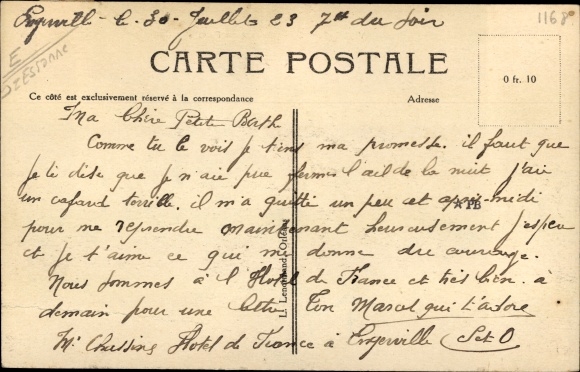 Angerville - le 30 Juillet 23 7h du soir
1168
E
CARTE POSTALE
0 fr. 10
Ce côté est exclusivement réservé à la correspondance
Adresse
Ma Chère Petite Berthe
Comme tu le vois je tiens ma promesse. il faut que
je te dise que je n'ai pue fermer l'œil de la nuit j'ai
un cafard terrible. il m'a quitté un peu cet après-midi
pour me reprendre maintenant heureusement j'espère
et je t'aime ce qui me donne du courage.
Nous sommes à l'Hotel de France et très bien. à
demain pour une lettre Ton Marcel qui t'adore
Mr Chessing Hotel de France à Angerville (S et O)
Ll. Lenormand, Orléans